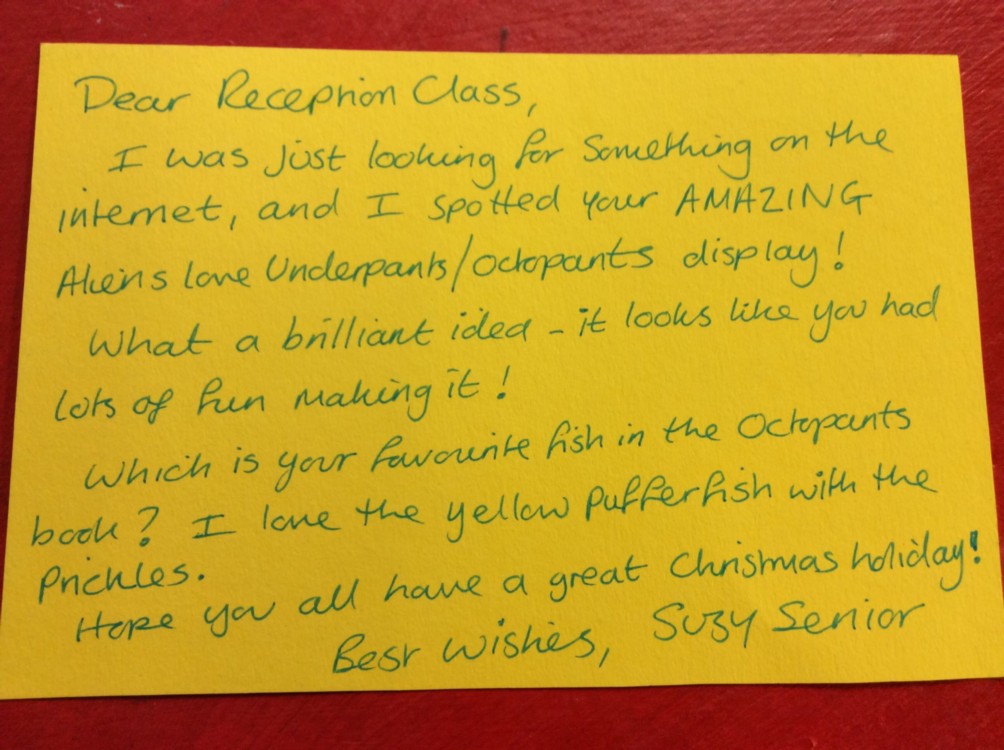 Dear Reception Class,
I was just looking for something on the
internet, and I spotted your AMAZING
Aliens love Underpants/Octopants display!
What a brilliant idea - it looks like you had
lots of fun making it!
Which is your favourite fish in the Octopants
book? I love the yellow pufferfish with the
prickles.
Hope you all have a great Christmas holiday!
Best Wishes, Suzy Senior